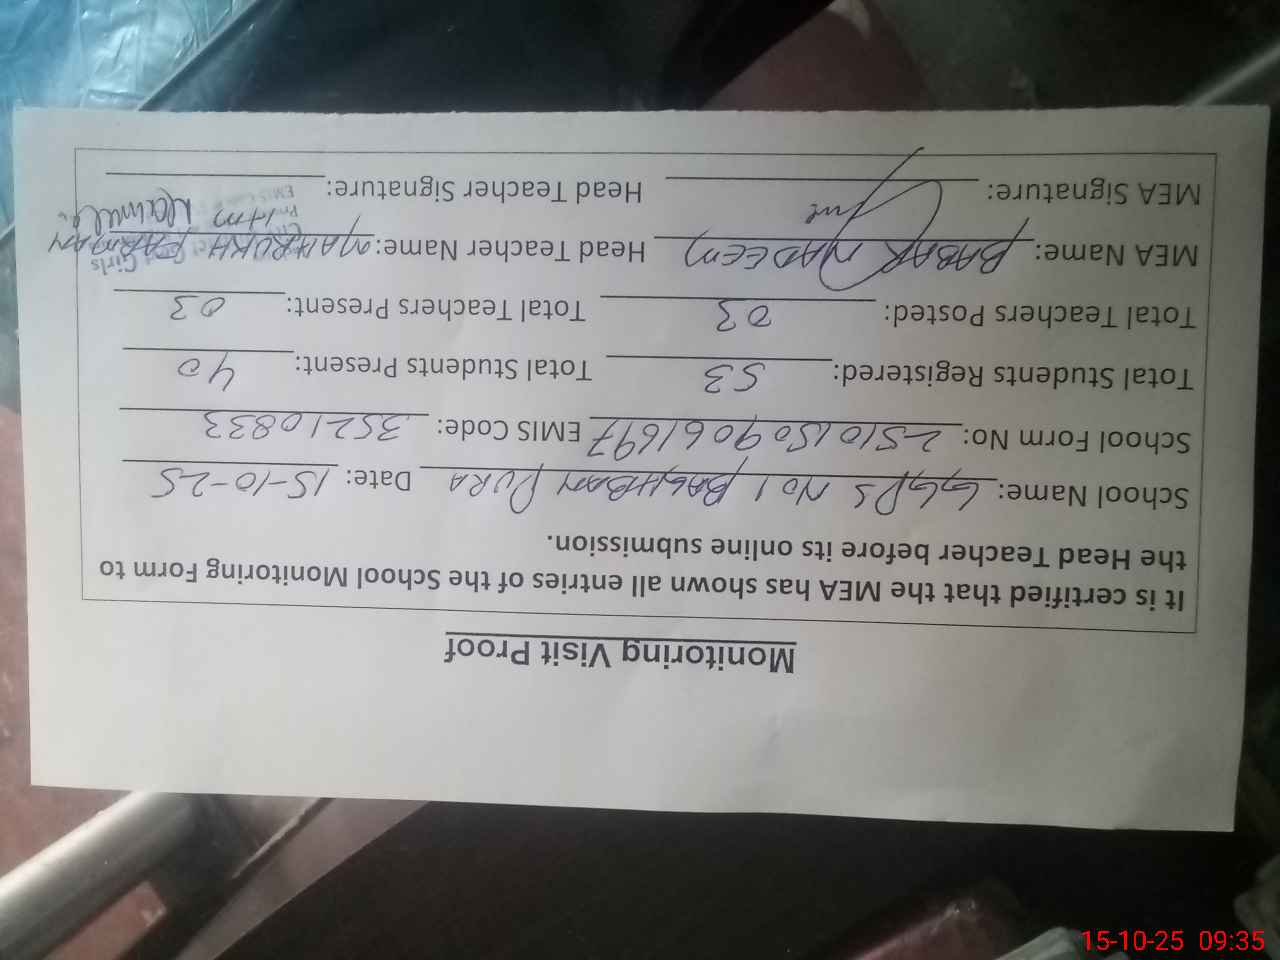 Monitoring Visit Proof
It is certified that the MEA has shown all entries of the School Monitoring Form to
the Head Teacher before its online submission.
School Name: GGPS No 1 BAGHBAN PURA Date: 15-10-25
School Form No: 25101509061697 EMIS Code: 35210833
Total Students Registered: 53 Total Students Present: 40
Total Teachers Posted: 03 Total Teachers Present: 03
MEA Name: BABAR NADEEM Head Teacher Name: MAHRUKH FARMAN
MEA Signature: Head Teacher Signature:
Girls
EMIS
15-10-25 09:35